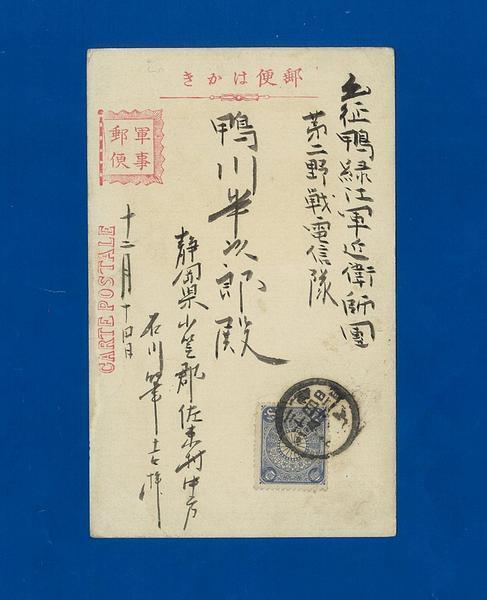 郵便はかき
出征鴨緑江軍近衛師團
第二野戦電信隊
鴨川半次郎殿
静岡縣小笠郡佐束村中方
石川
十二月十四日
軍事
郵便
CARTE POSTALE